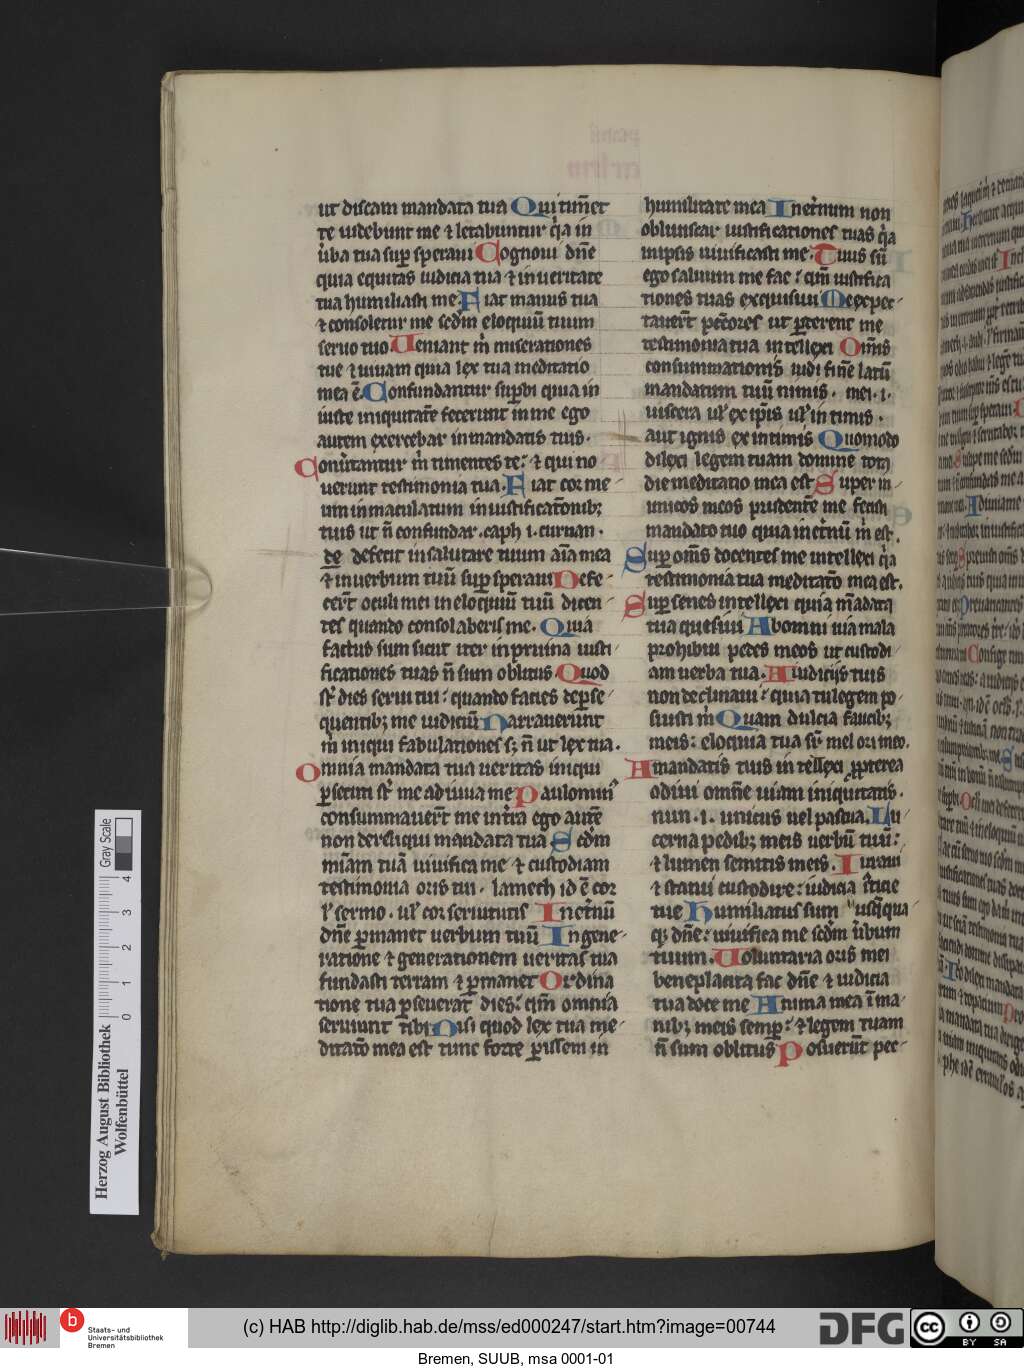 ut discam mandata tua Qui timēt
te uidebunt me ⁊ letabuntur q̇a in
ūba tua sup̄ speraui Cognoui dn̄e
quia equitas iudicia tua ⁊ in ueritate
tua humiliasti me. Fiat manus tua
⁊ consoletur me scd̄m eloquiū tuum
seruo tuo Ueniant m̄ miserationes
tue ⁊ uiuam quia lex tua meditatio
mea ē. Confundantur sup̄bi quia in
iuste iniquitatē fecerunt in me ego
autem exercebar in mandatis tuis.
Conūtantur m̄ timentes te: ⁊ qui no
uerunt testimonia tua. Fiat cor me
um inmaculatum in iustificatōnibꝫ
tuis ut n̄ confundar. caph .i. curuan.
te defecit in salutare tuum aīa mea
⁊ in uerbum tuū sup̄ speraui Defe
cerūt oculi mei in eloquiū tuū dicen
tes quando consolaberis me. Quia
factus sum sicut uter in pruina iusti
ficationes tuas n̄ sum oblitus. Quod
st̄ dies serui tui: quando facies de ꝑse
quentibꝫ me iudiciū Narrauerunt
m̄ iniqui fabulationes sꝫ n̄ ut lex tua.
Omnia mandata tua ueritas iniqui
ꝑsecuti st̄ me adiuua me Paulominꝰ
consummauerūt me in tr̄a ego autē
non dereliqui mandata tua Scd̄m
miām tuā uiuifica me ⁊ custodiam
testimonia oris tui. lamech id ē cor
ul̓ sermo. ul̓ cor seruitutis In et̄nū
dn̄e ꝑmanet uerbum tuū In gene
ratione ⁊ generationem ueritas tua
fundasti terram ⁊ ꝑmanet Ordina
tione tua ꝑseuerat dies: qm̄ omnia
seruiunt tibi Nisi quod lex tua me
ditatō mea est tunc forte ꝑissem in
humilitate mea In et̄num non
obliuiscar iustificationes tuas q̇a
in ipsis uiuificasti me. Tuus sū
ego saluum me fac: qm̄ iustifica
tiones tuas exquisiui Me expec
tauer̄t pc̄cores ut ꝑderent me
testimonia tua intellexi Omīs
consummationis uidi finē latū
mandatum tuū nimis. mei .i.
uiscera ul̓ ex ip̄is ul̓ intimis.
aut ignis ex intimis Quomodo
dilexi legem tuam domine tota
die meditatio mea est Super in
imicos meos prudentē me fecisti
mandato tuo quia in et̄nū m̄ est.
Sup̄ om̄s docentes me intellexi q̇a
testimonia tua meditatō mea est.
Sup̄ senes intellexi quia mādata
tua quesiui Ab omni uia mala
prohibui pedes meos ut custodi
am uerba tua. A iudicijs tuis
non declinaui: quia tu legem po
suisti m̄ Quam dulcia faucibꝫ
meis: eloquia tua sup̄ mel ori meo.
A mandatis tuis intellexi ꝓpterea
odiui omnē uiam iniquitatis.
nun .i. unicus uel pascua. Lu
cerna pedibꝫ meis uerbū tuū:
⁊ lumen semitis meis. Iuraui
⁊ statui custodire: iudicia iusticie
tue Humiliatus sum usq̄qua
qꝫ dn̄e: uiuifica me scd̄m ūbum
tuum. Uoluntaria oris mei
beneplacita fac dn̄e ⁊ iudicia
tua doce me Anima mea ī ma
nibꝫ meis semꝑ: ⁊ legem tuam
n̄ sum oblitus Posuerūt pec
Gray Scale
0 1 2 3 4
Herzog August Bibliothek
Wolfenbüttel
b
Staats- und
Universitätsbibliothek
Bremen
(c) HAB http://diglib.hab.de/mss/ed000247/start.htm?image=00744
DFG
cc
BY SA
Bremen, SUUB, msa 0001-01